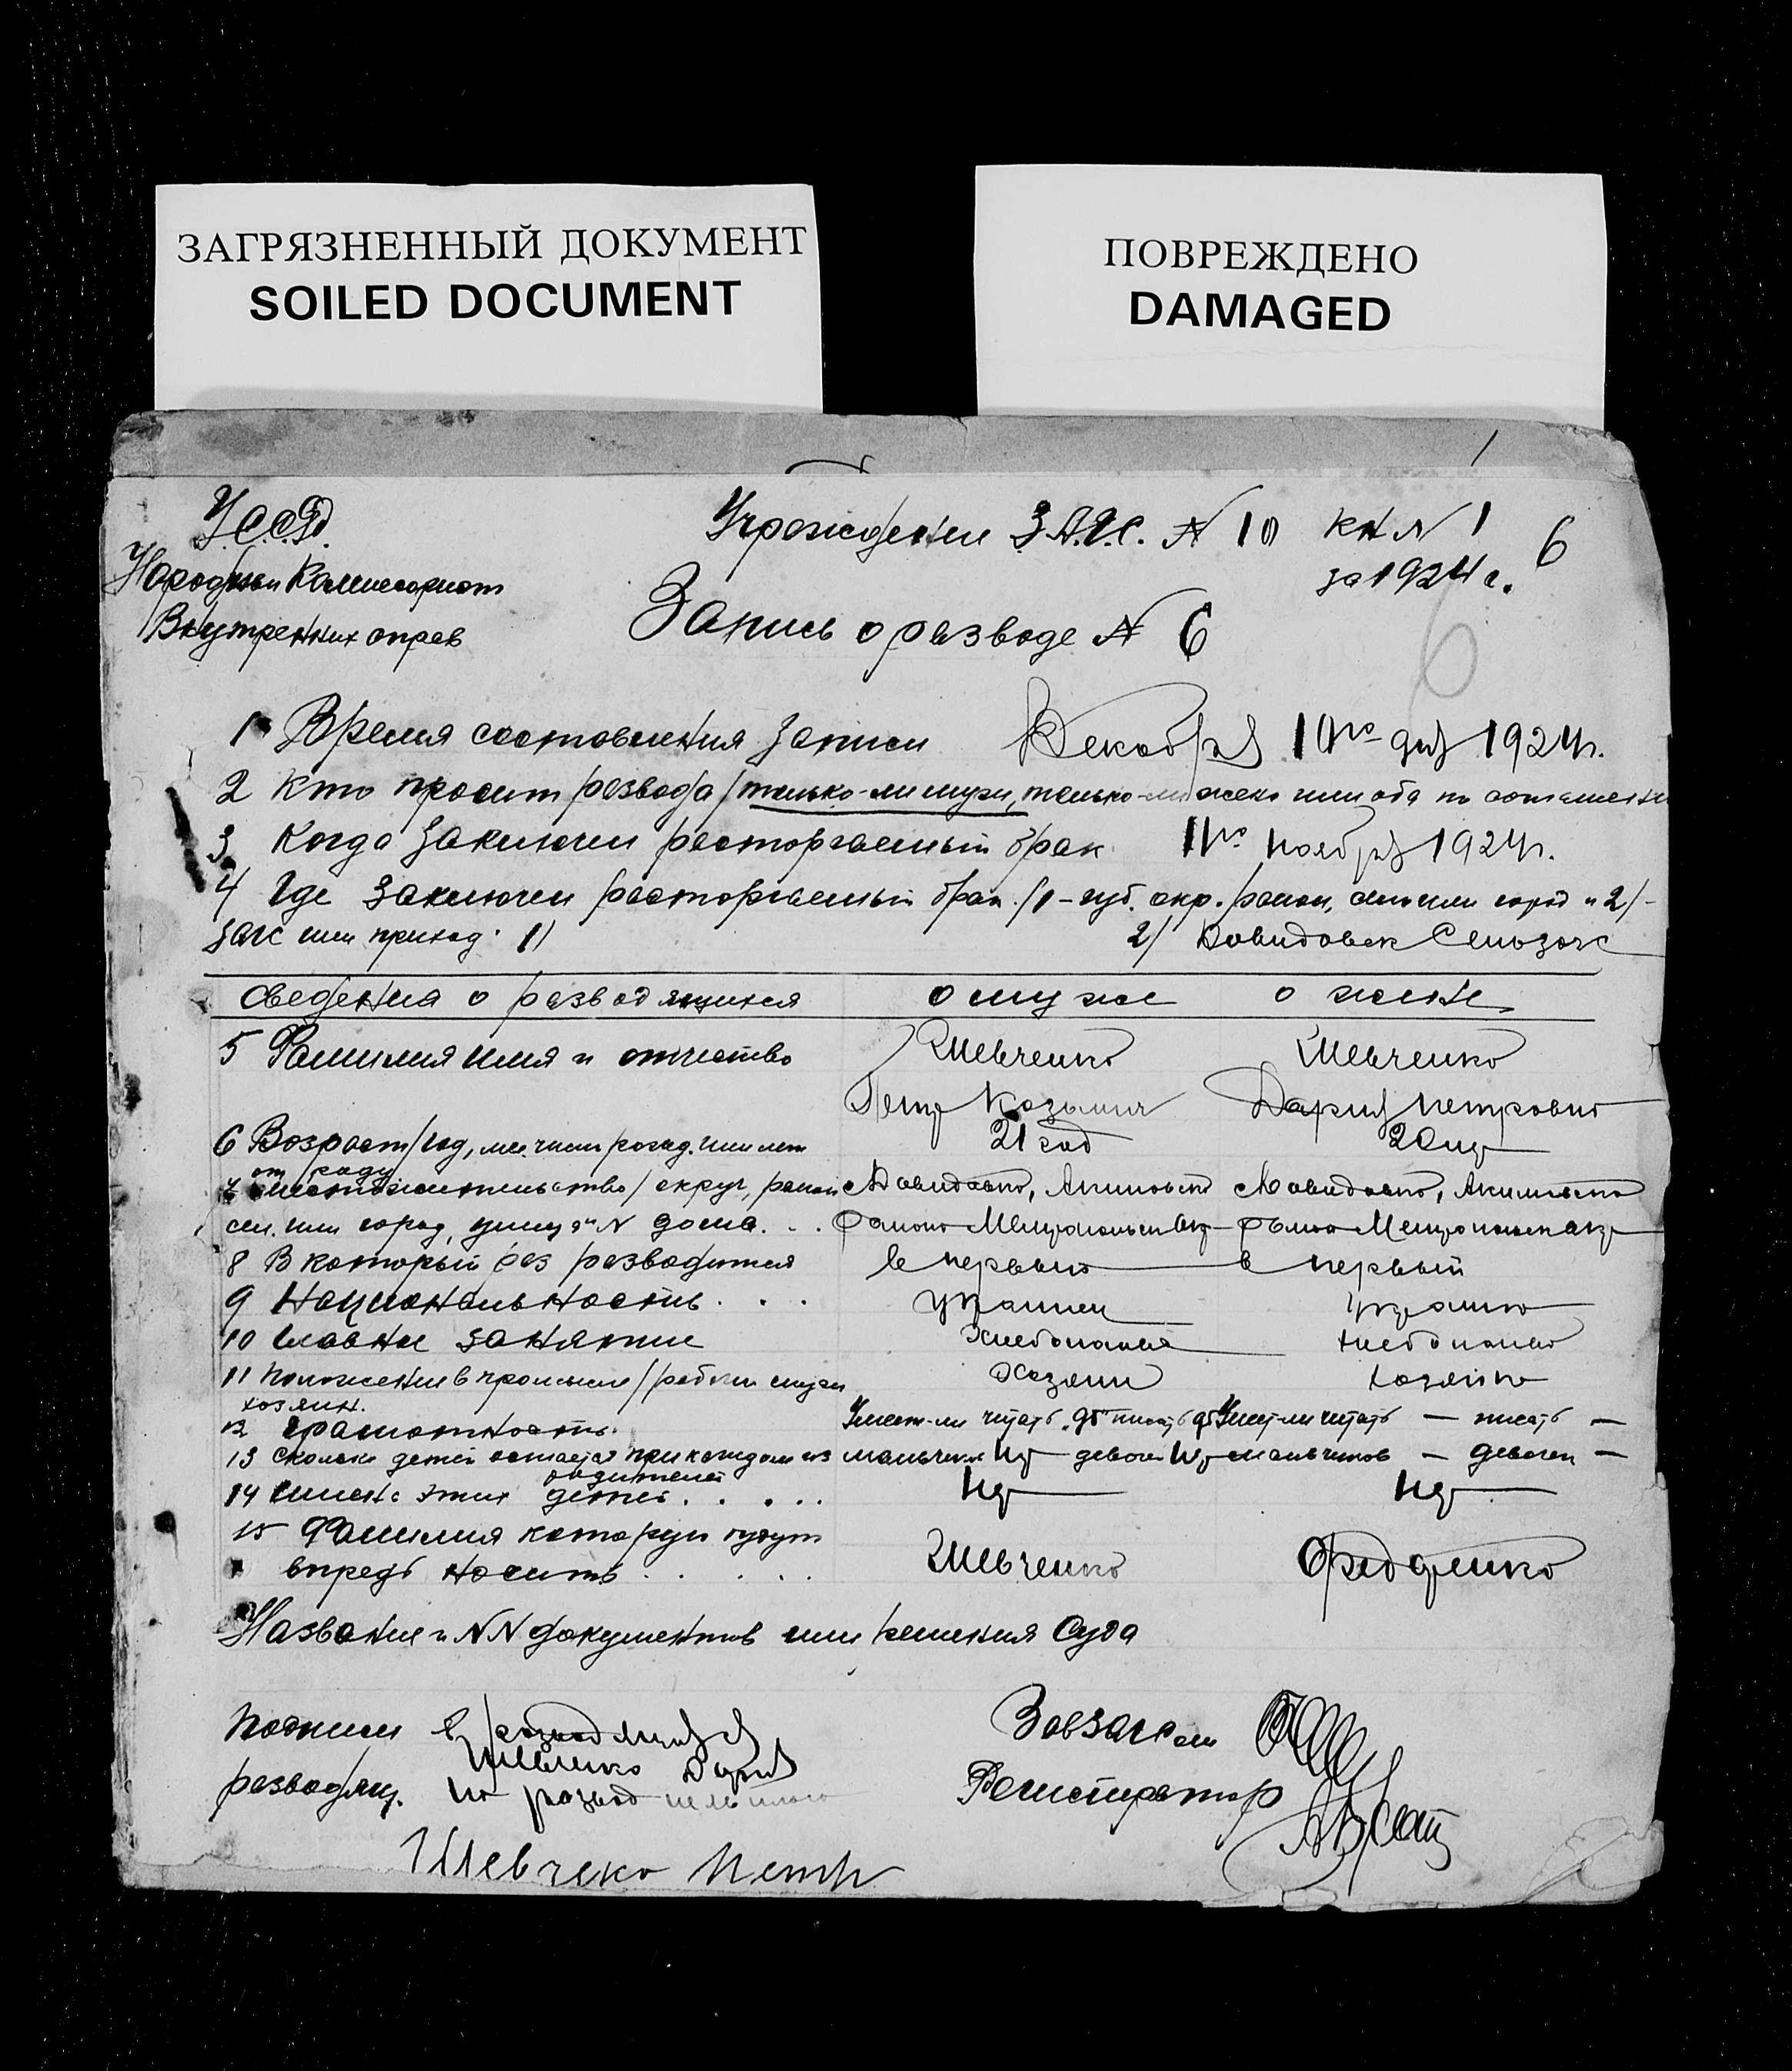 ЗАГРЯЗНЕННЫЙ ДОКУМЕНТ
SOILED DOCUMENT
ПОВРЕЖДЕНО
DAMAGED
1
У.С.С.Р.
Народный Комиссариат
Внутренних справ
Учреждении З.А.Г.С. № 10
КН № 1
за 1924 г.
6
Запись о разводе № 6
6
1 Время составления записи Декабря 10го дня 1924г.
2 Кто просит развода /только-ли муж, только-ли жена или оба по
3 Когда заключен расторгаемый брак 11го ноября 1924г.
4 Где заключен расторгаемый брак /1-губ. окр. район, село или город и 2/-
загс или приход. 1) 2/ Давидовск Сельзагс
сведения о разводящихся о муже о жене
5 Фамилия имя и отчество Шевченко Шевченко
Петр Дария Петровна
6 Возраст/год, мес. число рожд. или лет
от роду 21 год 20 лет
7 местожительство/округ, район Давидовка, Акимовско Давидовка, Акимовско
сел. или город, улица и № дома . . района Мелитопольск окр района Мелитопольск окр
8 В который раз разводится в первый в первый
9 Национальность . . . украинец
10 Главные занятие
11 Положение в промысле/рабочий служ
хозяин. Хозяин хозяйка
12 Грамотность. Умеет-ли читать да писать да Умеет-ли читать — писать —
13 Сколько детей остается при каждом из мальчиков нет девочек нет мальчиков — девочек —
родителей
14 Имена этих детей . . . . . нет нет
15 Фамилия которую будут
впредь носить . . . . . Шевченко
Название и NN документов или решения Суда
Подписи
Шевченко Дария
разводящ. на развод
Шевчеко Петр
Завзагсом
Регистратор